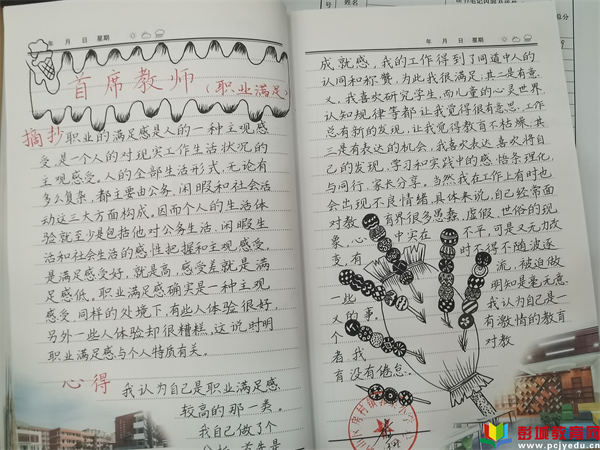 年 月 日 星期
首席教师（职业满足）
摘抄 职业的满足感是人的一种主观感
受,是一个人的对现实工作生活状况的
主观感受。人的全部生活形式,无论有
多么复杂,都主要由公务、闲暇和社会活
动这三大方面构成。因而个人的生活体
验就至少是包括他对公务生活、闲暇生
活和社会生活的感性把握和主观感受,
是满足感受好,就是高,感受差就是满
足感低。职业满足感确实是一种主观
感受,同样的处境下,有些人体验很好,
另外一些人体验却很糟糕,这说明
职业满足感与个人特质有关。
心得 我认为自己是职业满足感
较高的那一类。
我自己做了个
年 月 日 星期
成就感,我的工作得到了同道中人的
认同和称赞,为此我很满足,其二是有意
义,我喜欢研究学生,而儿童的心灵世界,
认知规律等都让我觉得很有意思,工作
总有新的发现,让我觉得教育不枯燥,其
三是有表达的机会,我喜欢表达,喜欢将自
己的发现,学习和实践中的感悟条理化,
与同行、家长分享。当然,我在工作上有时也
会出现不良情绪,具体来说,自己经常面
对教育界很多愚蠢、虚假、世俗的现
象,心中实在不平,可是又无力改
变,有时不得不随波逐
流,被迫做
一些明知是毫无意
义的事。我认为自己是一
个有激情的教育
者,我对教
育没有倦怠。
姓名
彭城教育网
www.pcjyedu.cn